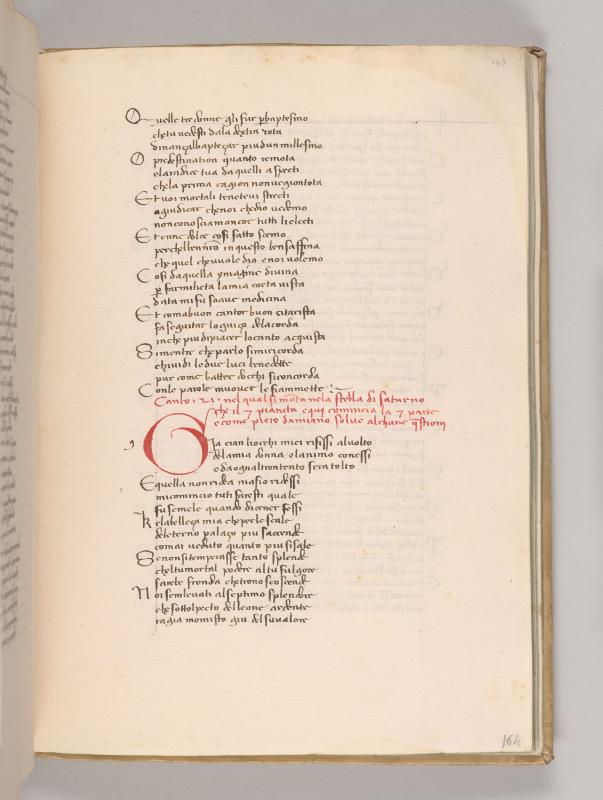 169
Quelle tre donne gli fur p baptesmo
che tu vedesti dala dextra rota
dinançalbapteçar piu dun millesmo
O predestination quanto remota
elaradice tua daquelli aspecti
che la prima cagion non vegiontota
Et voi mortali tenetevi strecti
agiudicar che noi chedio vedemo
non conosciamancor tutti lielecti
Et enne dolce cosi fatto scemo
perchellennro in questo bensaffina
che quel chevuole dio e noi volemo
Cosi daquella ymagine divina
p farmi lieta lamia corta vista
data mi fu soave medicina
Et comabuon cantor buon citarista
fa seguitar loguiço dela corda
in che piu di piacer lo canto acquista
Si mentre che parlo simiricorda
chi vidi le due luci benedette
pur come batter docchi siconcorda
Con le parole muover le fiammette
Canto . 21 . nel qual si mota nela stella di saturno
che il 7 pianeta equi comincia la 7 parte
e come piero damiano solve alchune qstioni
g
Gia eran liocchi miei rifissi alvolto
delamia donna elanimo conessi
e da ognaltrontento sera tolto
Equella non ridea masio ridessi
mi comincio tuti faresti quale
fu semele quando di cener fessi
Ke la belleça mia che per le scale
deleterno palaço piu saccende
comai veduto quanto piu si sale
Se non si temperasse tanto splende
cheltumortal podere al tu fulgore
sarebe fronda che trono scoscende
Noi sem levati al septimo splendore
che sottol pecto del leone ardente
ragia mo misto giu del su valore
164